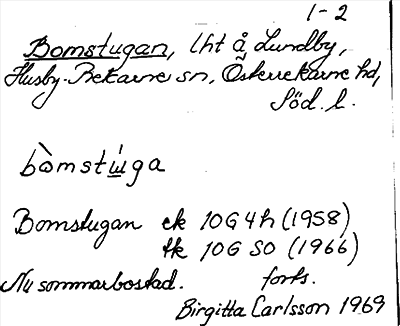 1-2
Bomstugan, lht å Lundby,
Husby-Rekarne sn, Österrekarne hd,
Söd. l.
bòmstúga
Bomstugan ek 10G4h (1958)
tk 10G SO (1966)
Nu sommarbostad. forts.
Birgitta Carlsson 1969